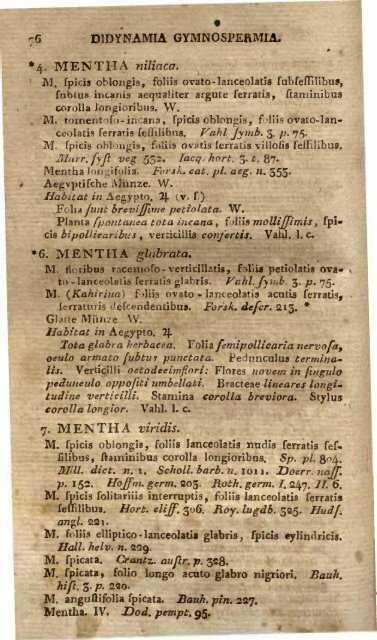 76 DIDYNAMIA GYMNOSPERMIA.
*4. MENTHA niliaca.
M. ſpicis oblongis, foliis ovato-lanceolatis ſubſeſſilibus,
ſubtus incanis aequaliter argute ſerratis, ſtaminibus
corolla longioribus. W.
M. tomentoſo-incana, ſpicis oblongis, foliis ovato-lan-
ceolatis ſerratis ſeſſilibus. Vahl ſymb. 3. p. 75.
M. ſpicis oblongis, foliis ovatis ſerratis villoſis ſeſſilibus.
Murr. ſyſt veg 532. Iacq. hort. 3. t. 87.
Mentha longifolia. Forsk. cat. pl. aeg. n. 355.
Aegyptiſche Münze. W.
Habitat in Aegypto. ♃ (v. ſ.)
Folia ſunt breviſſime petiolata. W.
Planta ſpontanea tota incana, foliis molliſſimis, ſpi-
cis bipollicaribus, verticillis confertis. Vahl. l. c.
*6. MENTHA glabrata.
M. floribus racemoſo-verticillatis, foliis petiolatis ova-
to-lanceolatis ſerratis glabris. Vahl. ſymb. 3. p. 75.
M. (Kahirina) foliis ovato-lanceolatis acutis ſerratis,
ſerraturis deſcendentibus. Forsk. deſcr. 213. *
Glatte Münze W.
Habitat in Aegypto. ♃
Tota glabra herbacea. Folia ſemipollicaria nervoſa,
oculo armato ſubtus punctata. Pedunculus termina-
lis. Verticilli octodecimflori: Flores novem in ſingulo
pedunculo oppoſiti umbellati. Bracteae lineares longi-
tudine verticilli. Stamina corolla breviora. Stylus
corolla longior. Vahl. l. c.
7. MENTHA viridis.
M. ſpicis oblongis, foliis lanceolatis nudis ſerratis ſeſ-
ſilibus, ſtaminibus corolla longioribus. Sp. pl. 804.
Mill. dict. n. 1. Scholl. barb. n. 1011. Doerr. naſſ.
p. 152. Hoffm. germ. 203. Roth. germ. I. 247. II. 6.
M. ſpicis ſolitariis interruptis, foliis lanceolatis ſerratis
ſeſſilibus. Hort. cliff. 306. Roy. lugdb. 325. Hudſ.
angl. 221.
M. foliis elliptico-lanceolatis glabris, ſpicis cylindricis.
Hall. helv. n. 229.
M. ſpicata. Crantz. auſtr. p. 328.
M. ſpicata, folio longo acuto glabro nigriori. Bauh.
hiſt. 3. p. 220.
M. anguſtifolia ſpicata. Bauh. pin. 227.
Mentha. IV. Dod. pempt. 95.